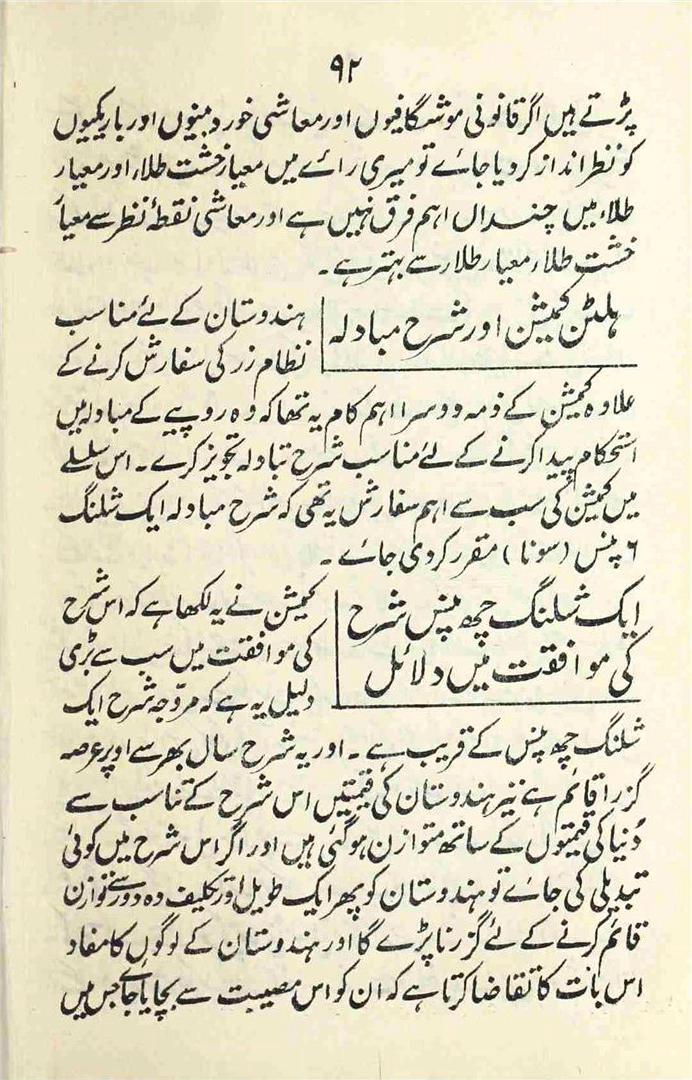 ۹۲
پڑتے ہیں اگر قانونی موشگافیوں اور معاشی خوردبینوں اور باریکیوں
کو نظر انداز کر دیا جائے تو میری رائے میں معیار خشت طلاء اور معیار
طلاء میں چنداں اہم فرق نہیں ہے اور معاشی نقطۂ نظر سے معیار
خشت طلاء معیار طلاء سے بہتر ہے ۔
ہلٹن کمیشن اور شرح مبادلہ
ہندوستان کے لئے مناسب
نظام زر کی سفارش کرنے کے
علاوہ کمیشن کے ذمہ دوسرا اہم کام یہ تھا کہ وہ روپیے کے مبادلہ میں
استحکام پیدا کرنے کے لئے مناسب شرح تبادلہ تجویز کرے ۔ اس سلسلے
میں کمیشن کی سب سے اہم سفارش یہ تھی کہ شرح مبادلہ ایک شلنگ
۶ پنس (سونا) مقرر کر دی جائے ۔
ایک شلنگ چھ پنس شرح
کی موافقت میں دلائل
کمیشن نے یہ لکھا ہے کہ اس شرح
کی موافقت میں سب سے بڑی
دلیل یہ ہے کہ مروّجہ شرح ایک
شلنگ چھ پنس کے قریب ہے ۔ اور یہ شرح سال بھر سے اوپر عرصہ
گزرا قائم ہے نیز ہندوستان کی قیمتیں اس شرح کے تناسب سے
دُنیا کی قیمتوں کے ساتھ متوازن ہو گئی ہیں اور اگر اس شرح میں کوئی
تبدیلی کی جائے تو ہندوستان کو پھر ایک طویل اور تکلیف دہ دور سے توازن
قائم کرنے کے لئے گزرنا پڑے گا اور ہندوستان کے لوگوں کا مفاد
اس بات کا تقاضا کرتا ہے کہ ان کو اس مصیبت سے بچایا جائے جس میں